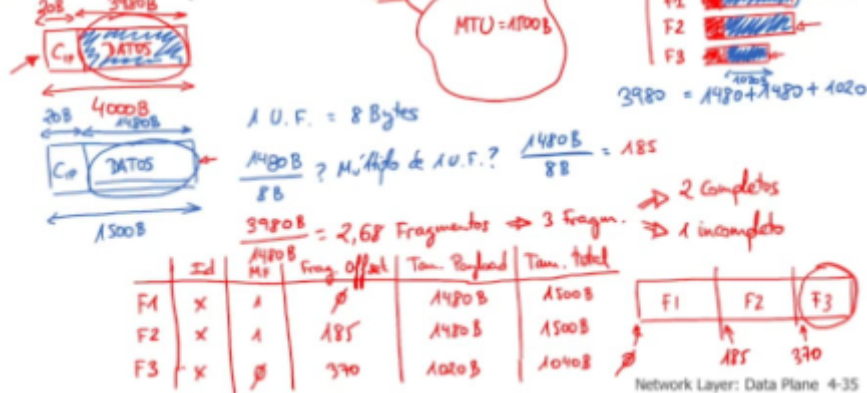 20B 3980B
C_IP DATOS
4000B
MTU = 1500B
F1
F2
F3
1020B
3980 = 1480+1480+1020
20B 1480B
C_IP DATOS
1500B
1 U.F. = 8 Bytes
1480B / 8B ? Múltiplo de 1 U.F.? 1480B / 8B = 185
3980B / 1480B = 2,68 Fragmentos ⇒ 3 Fragm. ⇒ 2 Completos
⇒ 1 incompleto
Id MF Frag. Offset Tam. Payload Tam. total
F1 x 1 ∅ 1480B 1500B
F2 x 1 185 1480B 1500B
F3 x ∅ 370 1020B 1040B
F1 F2 F3
∅ 185 370
Network Layer: Data Plane 4-35